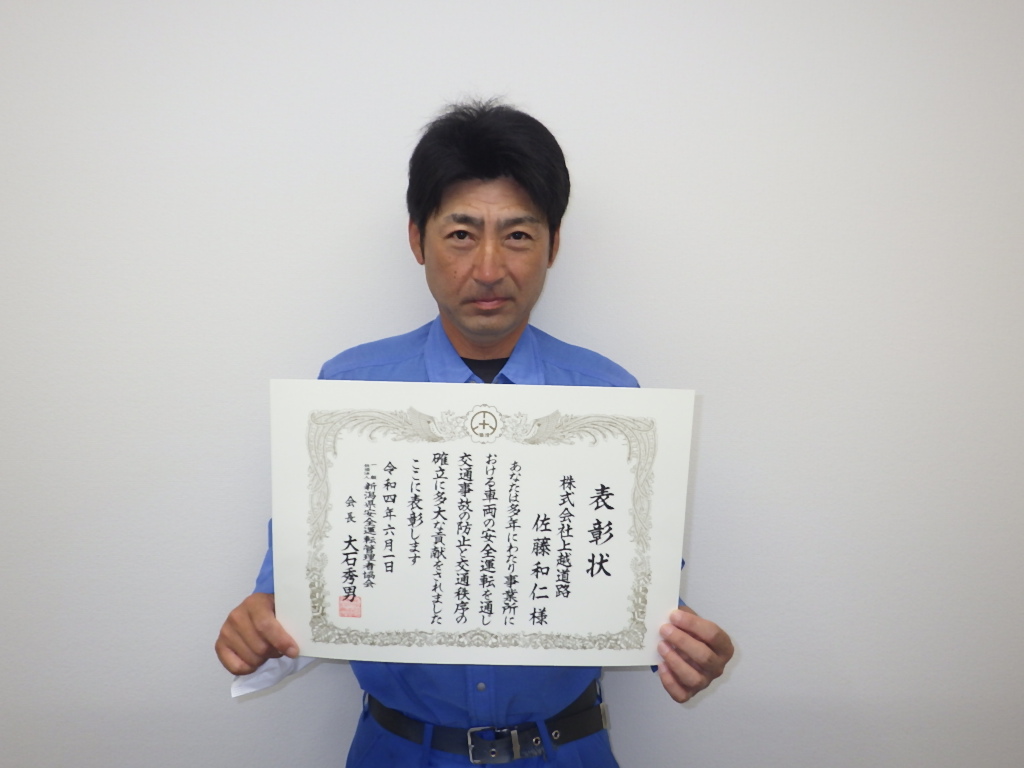 表彰状
株式会社上越道路
佐藤和仁様
あなたは多年にわたり事業所に
おける車両の安全運転を通じ
交通事故の防止と交通秩序の
確立に多大な貢献をされました
ここに表彰します
令和四年六月一日
一般財団法人 新潟県安全運転管理者協会
会長 大石秀男